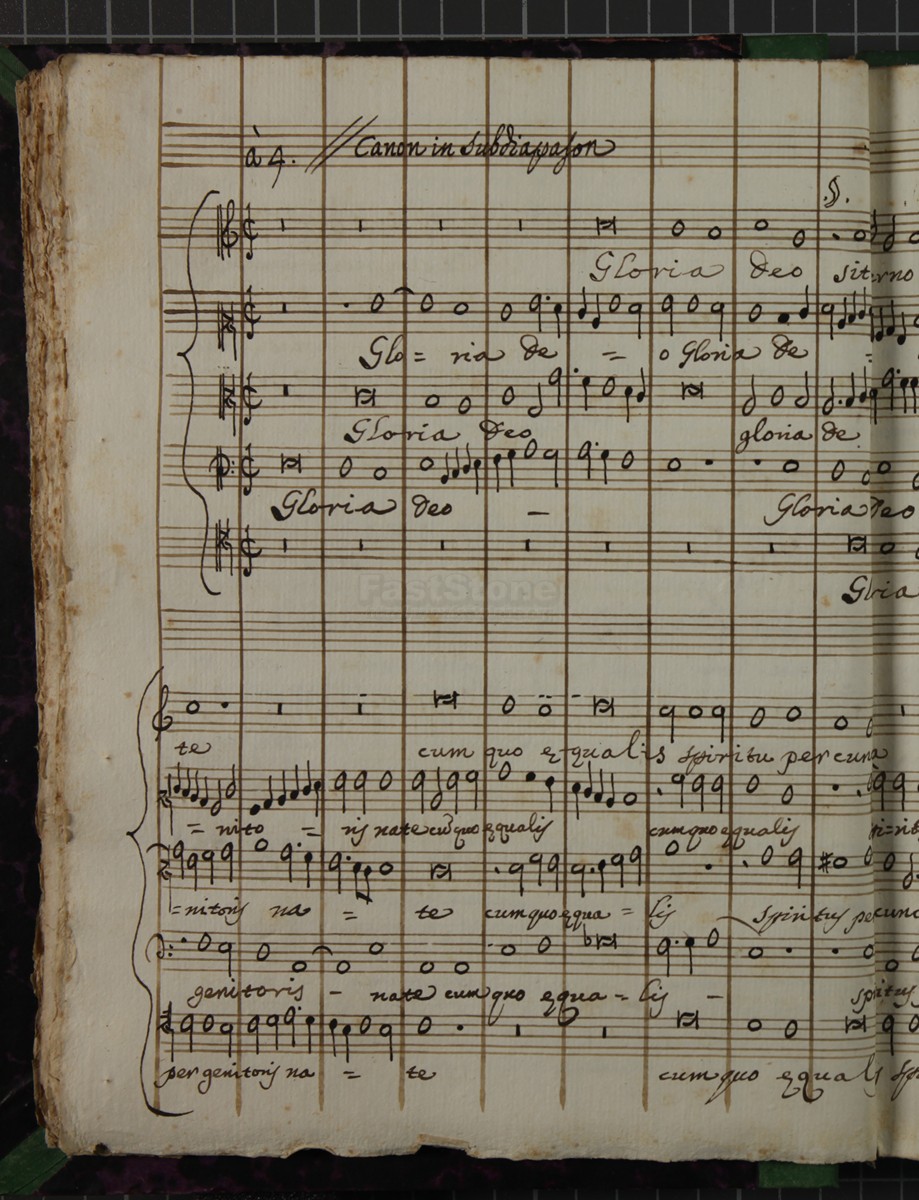 à 4. // Canon in subdiapason
.S.
Gloria deo sit
Glo = ria de = o Gloria de =
Gloria deo gloria de
Gloria deo – Gloria deo
FastStone
Gloria
te cum quo equalis spiritu per cuna
= nito = ris nate cū quo equalis cum quo equalis
= nitoris na = te cum quo equa = lis spiritus per cunc
genitoris – nate cum quo equa = lis – spiritus
per genitoris na = te cum quo equalis